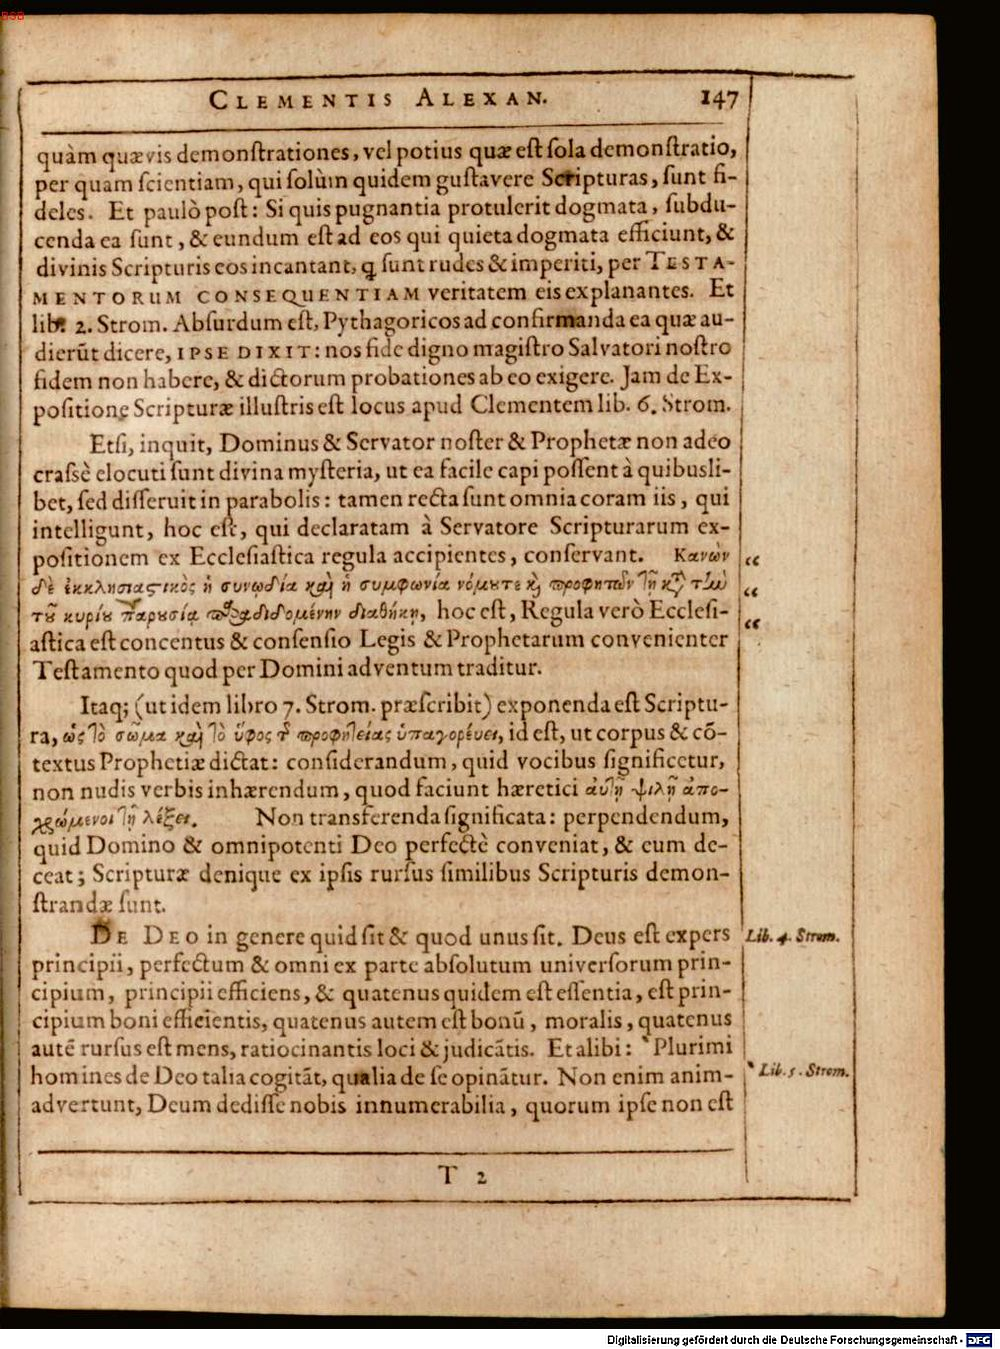 BSB
CLEMENTIS ALEXAN. 147
quàm quævis demonſtrationes, vel potius quæ eſt ſola demonſtratio,
per quam ſcientiam, qui ſolùm quidem guſtavere Scripturas, ſunt fi-
deles. Et paulò poſt: Si quis pugnantia protulerit dogmata, ſubdu-
cenda ea ſunt, & eundum eſt ad eos qui quieta dogmata efficiunt, &
divinis Scripturis eos incantant, ꝗ ſunt rudes & imperiti, per TESTA-
MENTORUM CONSEQUENTIAM veritatem eis explanantes. Et
lib. 2. Strom. Abſurdum eſt, Pythagoricos ad confirmanda ea quæ au-
dierūt dicere, IPSE DIXIT: nos fide digno magiſtro Salvatori noſtro
fidem non habere, & dictorum probationes ab eo exigere. Jam de Ex-
poſitione Scripturæ illuſtris eſt locus apud Clementem lib. 6. Strom.
Etſi, inquit, Dominus & Servator noſter & Prophetæ non adeo
craſsè elocuti ſunt divina myſteria, ut ea facile capi poſſent à quibusli-
bet, ſed diſſeruit in parabolis: tamen recta ſunt omnia coram iis, qui
intelligunt, hoc eſt, qui declaratam à Servatore Scripturarum ex-
poſitionem ex Eccleſiaſtica regula accipientes, conſervant. Κανὼν “
δὲ ἐκκλησιαστικὸς ἡ συνῳδία καὶ ἡ συμφωνία νόμου τε καὶ προφητῶν τῇ κατὰ τὴν “
τοῦ κυρίου παρουσίᾳ παραδιδομένην διαθήκῃ, hoc eſt, Regula verò Eccleſi- “
aſtica eſt concentus & conſenſio Legis & Prophetarum convenienter
Teſtamento quod per Domini adventum traditur.
Itaq; (ut idem libro 7. Strom. præſcribit) exponenda eſt Scriptu-
ra, ὡς τὸ σῶμα καὶ τὸ ὕφος τ̃ προφητείας ὑπαγορέυει, id eſt, ut corpus & cō-
textus Prophetiæ dictat: conſiderandum, quid vocibus ſignificetur,
non nudis verbis inhærendum, quod faciunt hæretici ἀυτῇ ψιλῇ ἀπο-
χρώμενοι τῇ λέξει. Non transferenda ſignificata: perpendendum,
quid Domino & omnipotenti Deo perfectè conveniat, & eum de-
ceat; Scripturæ denique ex ipſis rurſus ſimilibus Scripturis demon-
ſtrandæ ſunt.
DE DEO in genere quid ſit & quod unus ſit. Deus eſt expers Lib. 4. Strom.
principii, perfectum & omni ex parte abſolutum univerſorum prin-
cipium, principii efficiens, & quatenus quidem eſt eſſentia, eſt prin-
cipium boni efficientis, quatenus autem eſt bonū, moralis, quatenus
autē rurſus eſt mens, ratiocinantis loci & judicātis. Et alibi: * Plurimi
homines de Deo talia cogitāt, qualia de ſe opinātur. Non enim anim- * Lib. 5. Strom.
advertunt, Deum dediſſe nobis innumerabilia, quorum ipſe non eſt
T 2
Digitalisierung gefördert durch die Deutsche Forschungsgemeinschaft - DFG